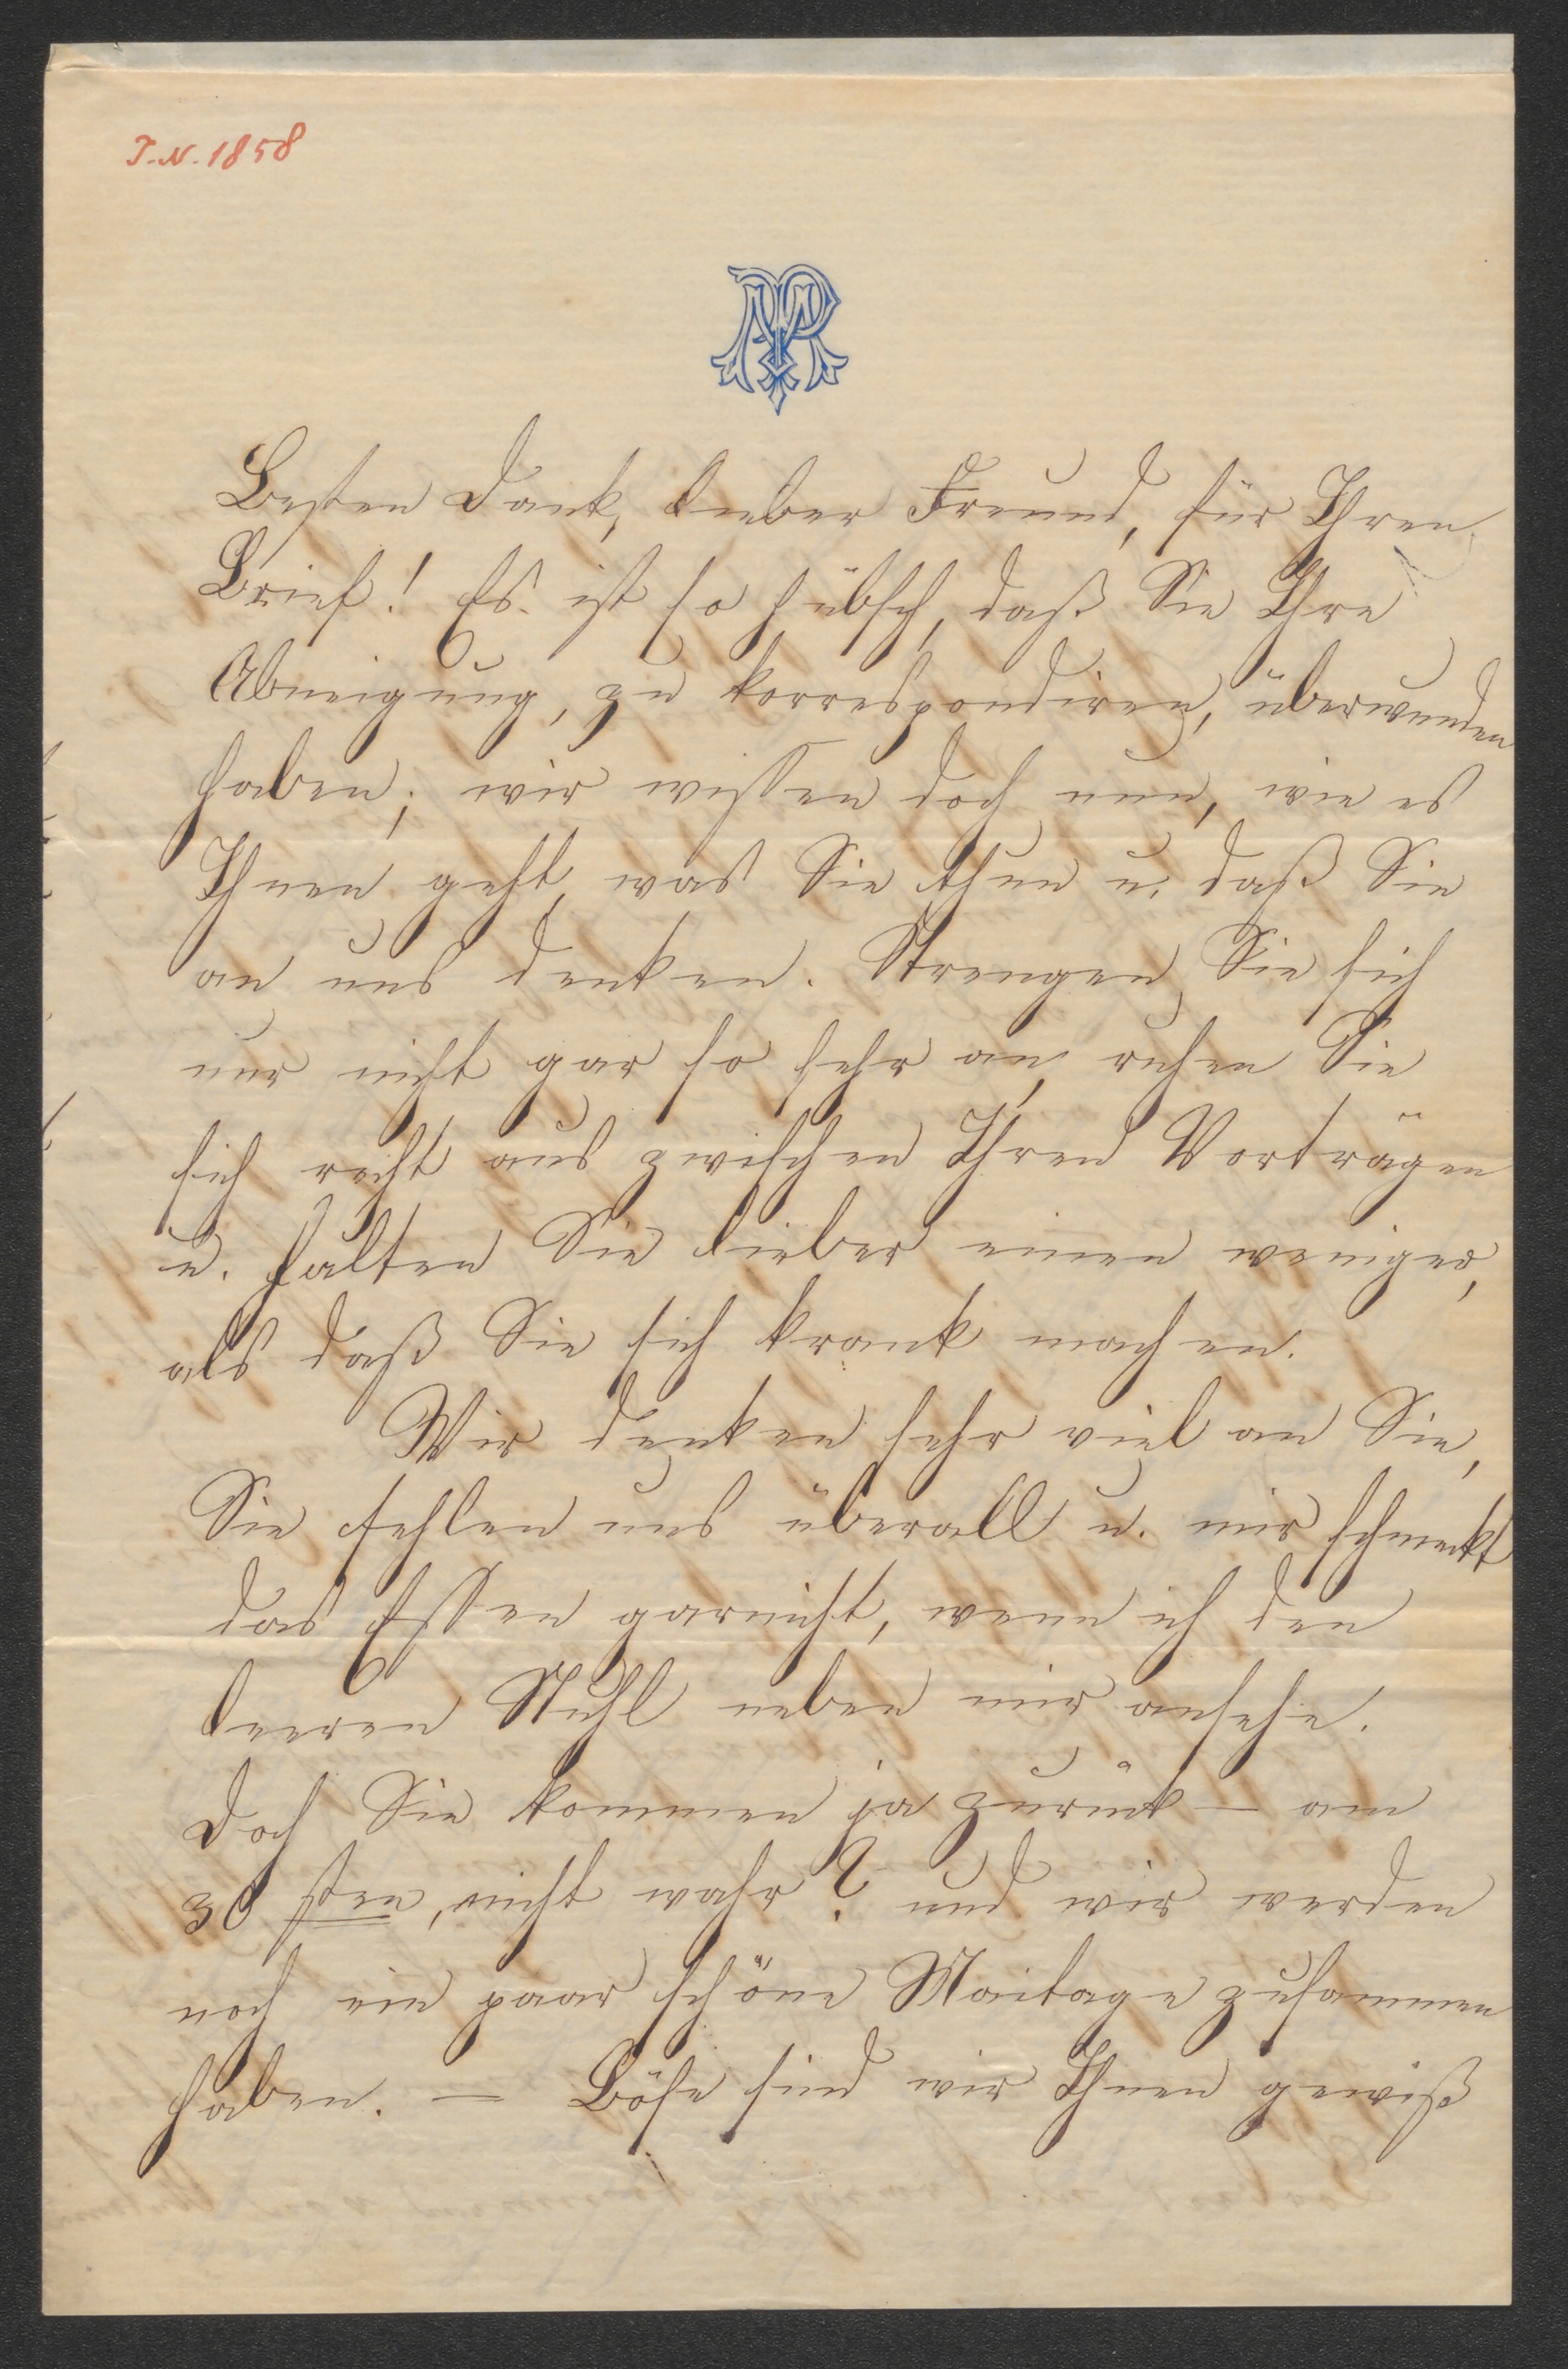 T.N. 1858
MR
Besten Dank, lieber Freund, für Ihren
Brief! Es ist so hübsch, daß Sie Ihre
Abneigung, zu korrespondiren, überwunden
haben; wir wissen doch nun, wie es
Ihnen geht, was Sie thun u. daß Sie
an uns denken. Strengen Sie sich
nur nicht gar so sehr an, ruhen Sie
sich recht aus zwischen Ihren Vorträgen
u. halten Sie lieber einen weniger,
als daß Sie sich krank machen.
Wir denken sehr viel an Sie,
Sie fehlen uns überall u. mir schmeckt
das Essen garnicht, wenn ich den
leeren Stuhl neben mir ansehe.
Doch Sie kommen ja zurück – am
30 sten, nicht wahr? und wir werden
noch ein paar schöne Maitage zusammen
haben. – Böse sind wir Ihnen gewiß